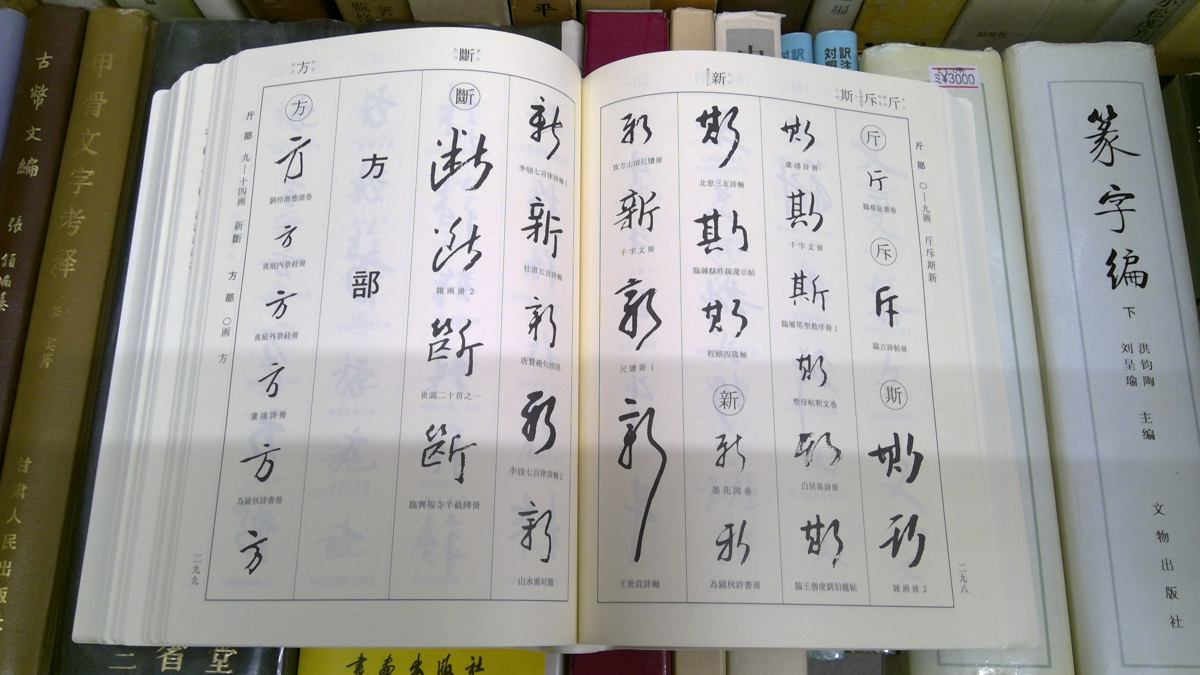 斤部 〇—九画 斤斥斯新
斯・斥・斤
新
斤
斤
臨蔡襄書巻
斥
斥
臨古詩帖冊
斯
斯
斯
雑画冊2
斯
盧鴻詩冊
斯
千字文冊
斯
臨雁塔聖教序冊1
斯
聖母帖釈文巻
斯
白居易詩冊
斯
臨王僧虔劉伯寵帖
斯
北窓三友詩軸
斯
斯
程頤四箴軸
新
新
墨花図巻
新
為鏡秋詩書冊
新
新
千字文冊
新
尺牘冊1
新
王世貞詩軸
二九八
斷
方
新
李頎七言律詩軸1
新
杜甫五言詩軸
新
唐賢絶句四屏
新
李頎七言律詩軸2
新
山水冊対題
斷
斷
斷
雑画冊2
斷
世説二十首之一
斷
臨興福寺半截碑冊
方部
方
方
劉伶酒徳頌巻
方
黄庭内景経冊
方
黄庭外景経冊
方
盧鴻詩冊
方
為鏡秋詩書冊
方
斤部 九—十四画 新斷 方部 〇画 方
二九九
篆字编
下
洪钧陶
刘呈瑜
主编
文物出版社
¥3000
古幣文編
張頷編纂
甲骨文字考释
甘肃人民出版社
書画出版社
訳注
対照
平